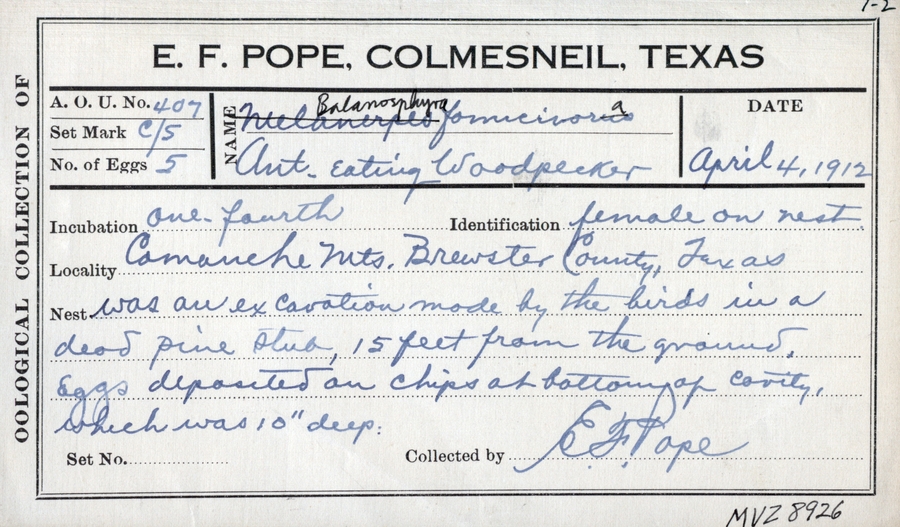 1-2
E. F. POPE, COLMESNEIL, TEXAS
OOLOGICAL COLLECTION OF
A. O. U. No. 407
Set Mark c/5
No. of Eggs 5
NAME
Balanosphyra a
Melanerpes formicivorus
Ant-eating Woodpecker
DATE
April 4, 1912
Incubation one-fourth Identification female on nest.
Locality Comanche Mts. Brewster County, Texas
Nest was an excavation made by the birds in a
dead pine stub, 15 feet from the ground.
Eggs deposited on chips at bottom of cavity,
which was 10" deep.
Set No. Collected by E. F. Pope
MVZ 8926